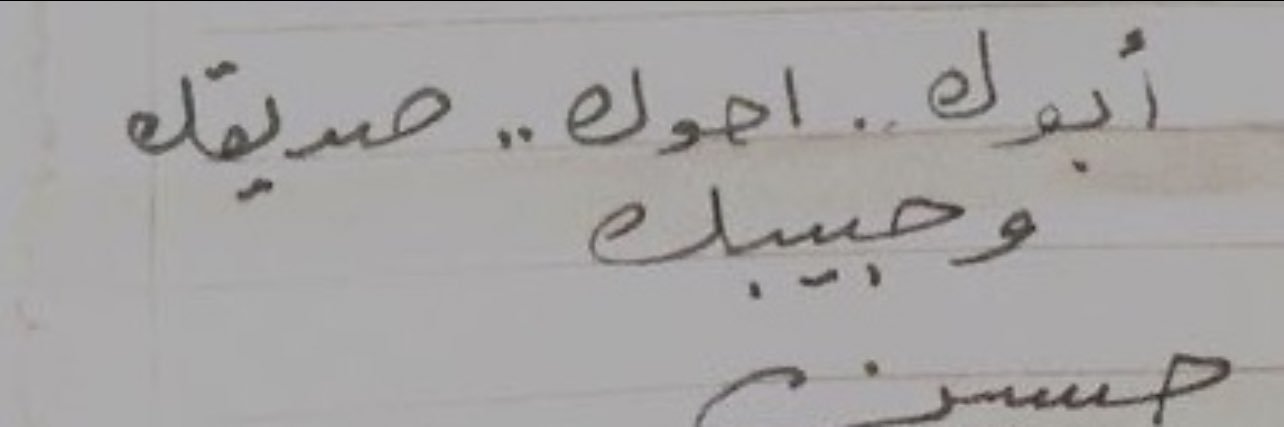 أبوك .. اخوك .. صديقك
وحبيبك
حسن